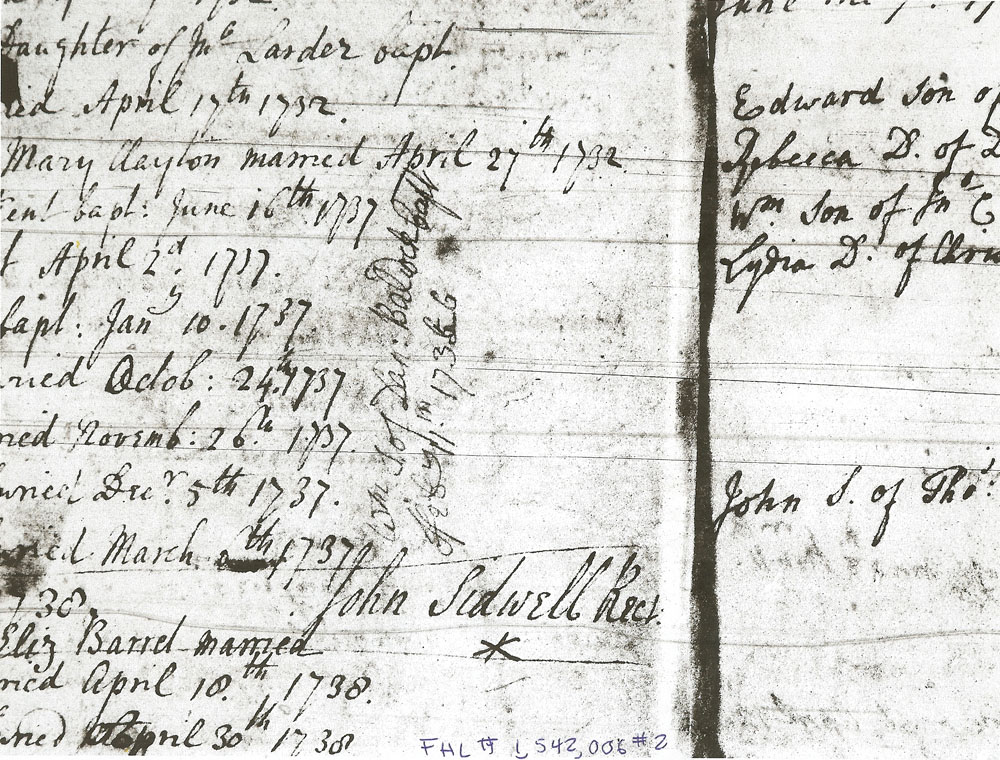 Daughter of Jno Larder bapt.
ied April 17th 1732.
Mary Clayton married April 27th 1732
ent bapt: June 16th 1737
t April 2d. 1737.
bapt: Jany 10. 1737.
ried Octob: 24th 1737
ried Novemb: 26th 1737.
uried Decr 5th 1737.
ried March th 1737/8
John Sidwell Rect.
1738.
Eliz Barrel married
ried April 18th 1738.
uried April 30th 1738
Wm S of Dan: Baldock bapt
1736
FHL # 1,542,006 #2
June
Edward Son of
Rebecca D. of
Wm Son of Jno C
Lydia D. of Chris
John S. of Thos.